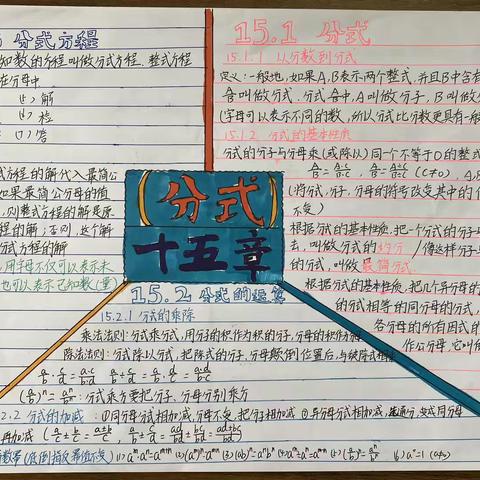 分式方程
知数的方程叫做分式方程. 整式方程
在分母中.
解
检
答
式方程的解代入最简公
如果最简公分母的值
,则整式方程的解是原
程的解;否则,这个解
分式方程的解
用字母不仅可以表示未
也可以表示已知数(量)
15.1 分式
15.1.1 从分数到分式
定义:一般地,如果A,B表示两个整式,并且B中含有
叫做分式.分式中,A叫做分子,B叫做分
(字母可以表示不同的数,所以分式比分数更具有一般
15.1.2 分式的基本性质
分式的分子与分母乘(或除以)同一个不等于0的整式
A/B=A·C/B·C A/B=A÷C/B÷C (C≠0),
(将分式,分子,分母的符号改变其中的
不变)
根据分式的基本性质,把一个分式的分子与
去,叫做分式的约分 像这样分子与
的分式,叫做最简分式.
根据分式的基本性质,把几个异分母的
的分式相等的同分母的分式,
各分母的所有因式的
作公分母,它叫
分式
十五章
15.2 分式的运算
15.2.1 分式的乘除
乘法法则:分式乘分式,用分子的积作为积的分子,分母的积作为
除法法则:分式除以分式,把除式的分子、分母颠倒位置后,与被除式相乘
a/b·c/d=a·c/b·d a/b÷c/d=a/b·d/c=a·d/b·c
(a/b)^n=a^n/b^n:分式乘方要把分子、分母分别乘方
2.2 分式的加减:①同分母分式相加减,分母不变,把分子相加减 ②异分母分式相加减,先通分,变成同分母
再加减 (a/c±b/c=a±b/c, a/b±c/d=ad/bd±bc/bd=ad±bc/bd)
(1)a^m·a^n=a^m+n (2)(a^m)^n=a^mn (3)(ab)^n=a^n b^n (4)a^m÷a^n=a^m-n (5)(a/b)^n=a^n/b^n (6)a^0=1 (a≠0)